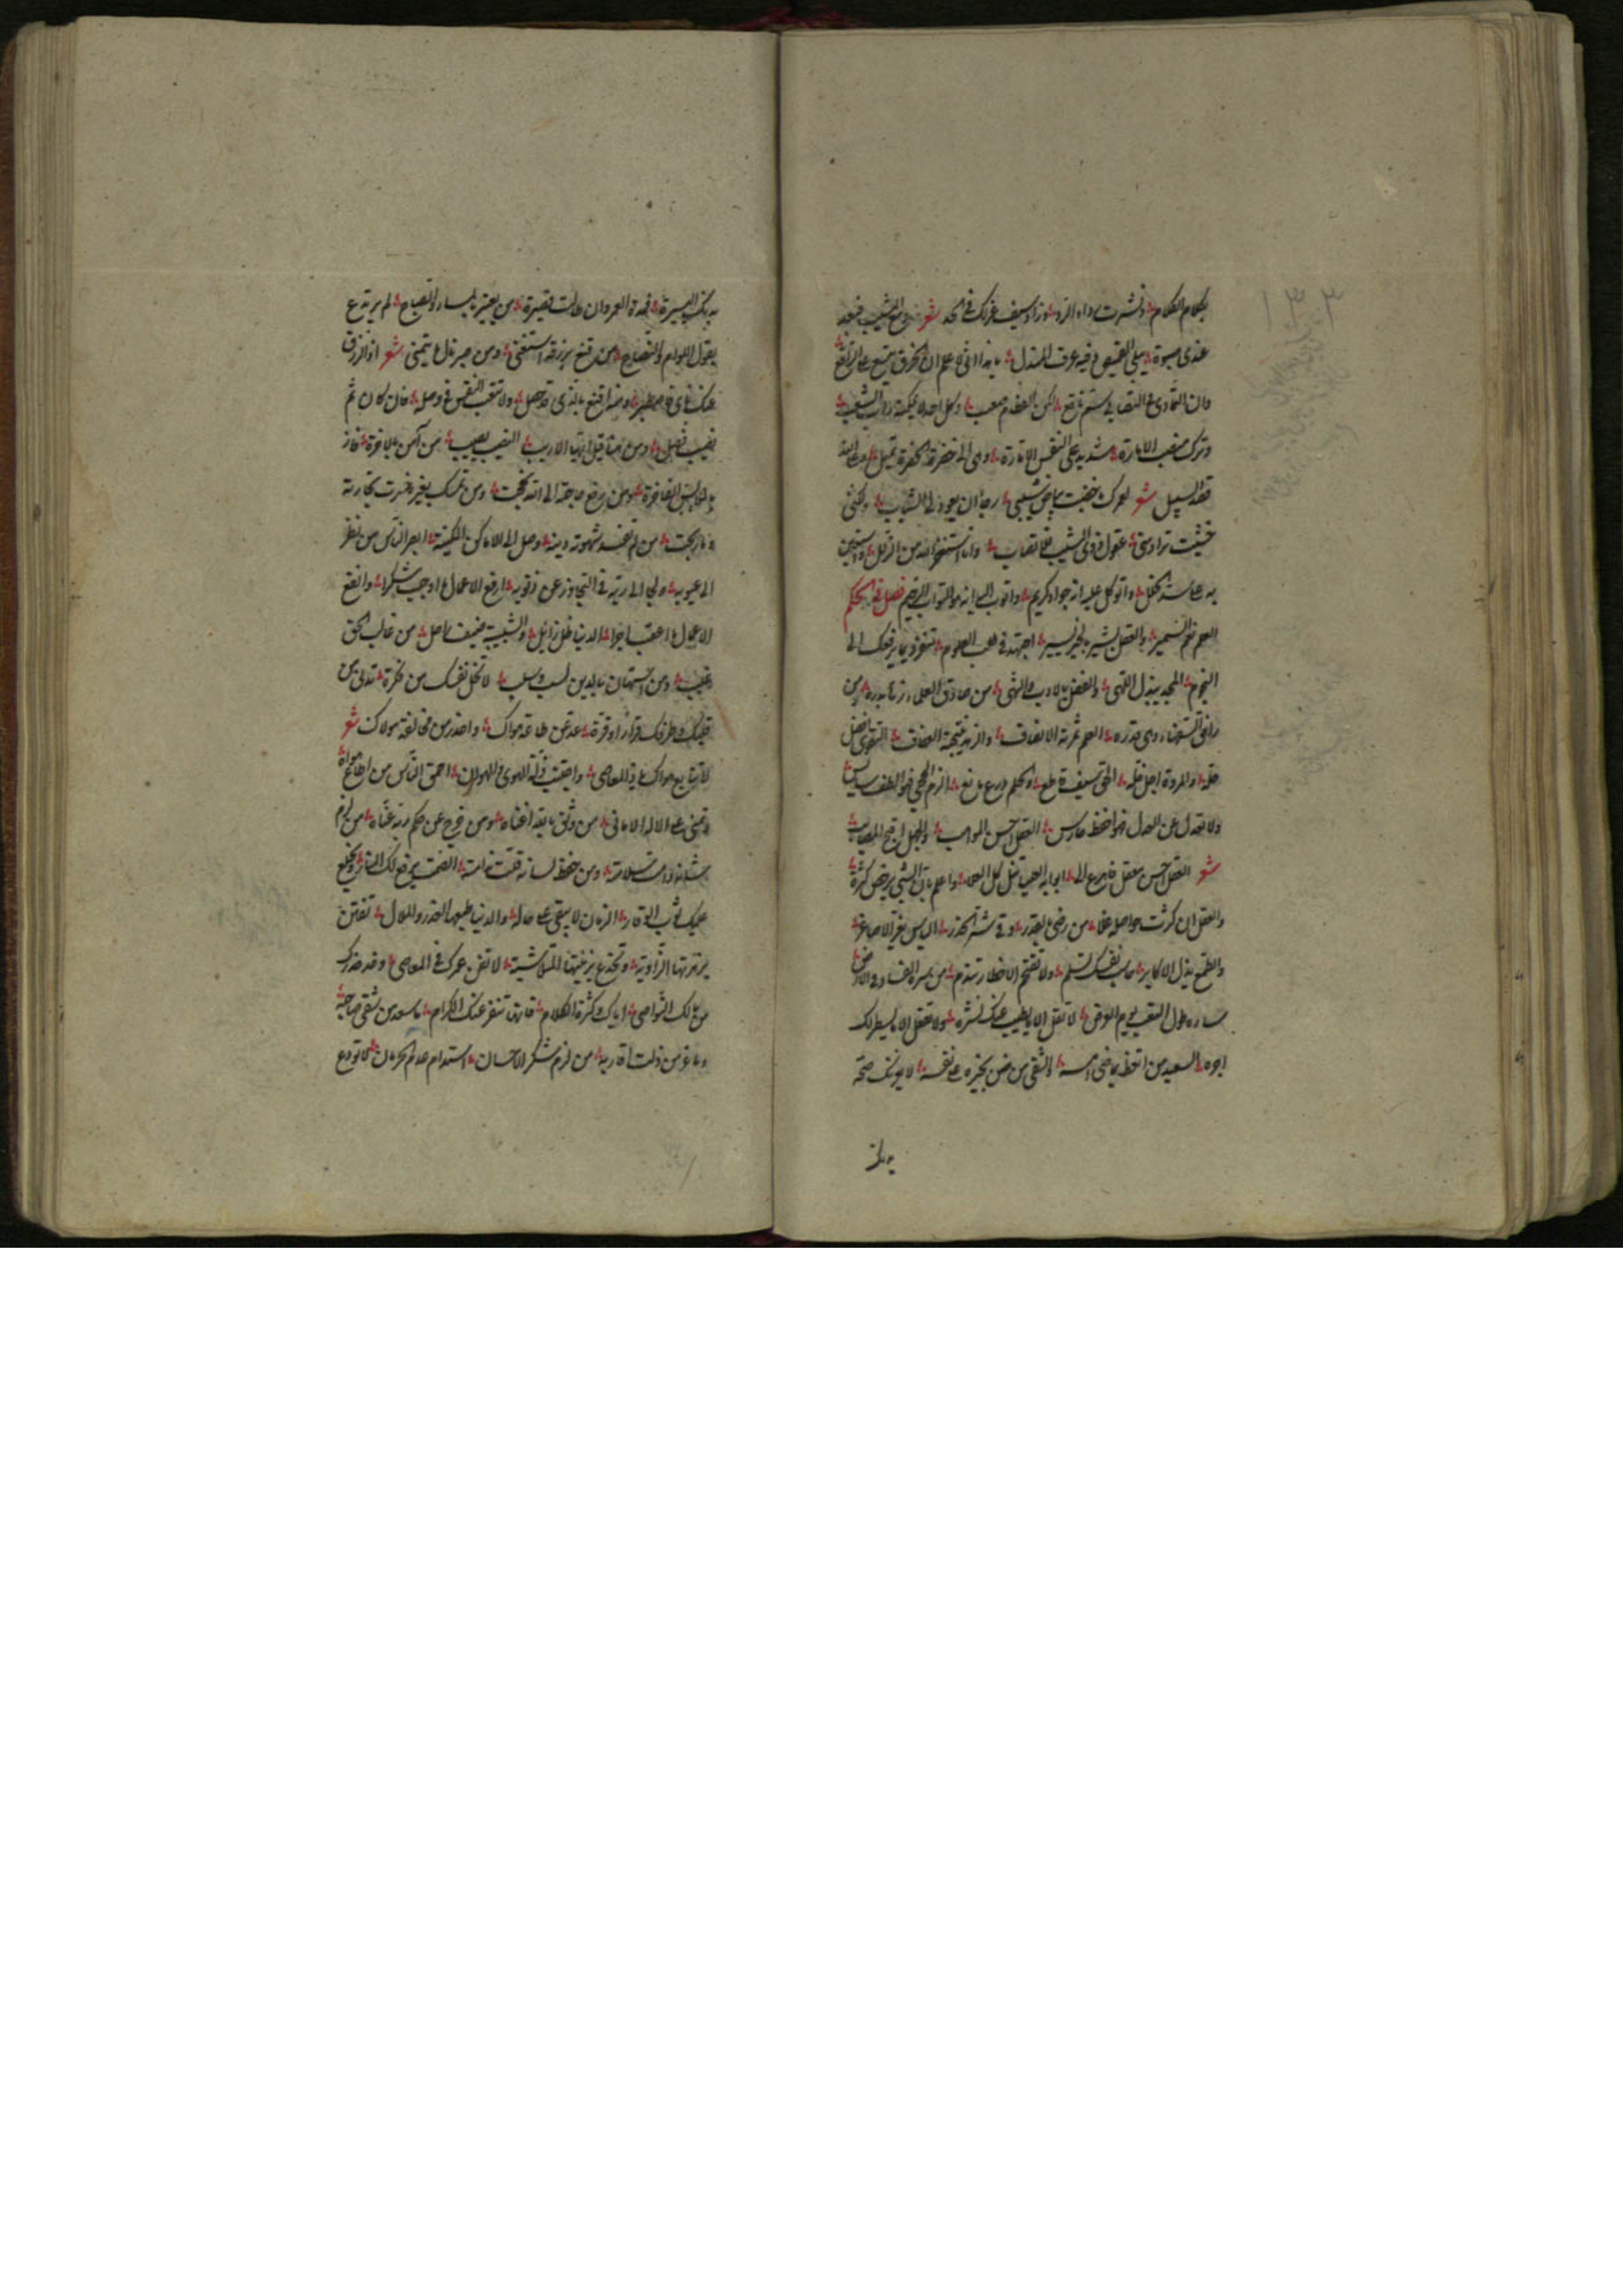 بكلام الكلام ونشرت رداء الردى وزاد سيف غربك في الحد شعر ودع المشيب فبعد
عندي صبوة يبلى القميص وفيه عرف المندل يا هذا اني لاعلم ان الخرق يتسع على الراقع
وان التمادي في التصابي سم ناقع لكن الفطام صعب وكل احد لا يمكنه
وترك منصب الامارة شديد على النفس الامارة وهي الى خضرة تميل
قصد السبيل شعر لعمرك ما خضبت بياض شيبي رجاء ان يعود لي الشباب ولكني
خشيت تراد مني عقول ذوي المشيب فلا تصاب وانا استغفر الله من الزلل واستعين
به على سد الخلل واتوكل عليه انه جواد كريم واتوب اليه انه هو التواب الرحيم فصل في الحكم
العلم نعم السمير والعقل بشير بالخير يسير اجتهد في طلب العلوم تنفرد بما يرفعك الى
النجوم المجد ببذل اللهى والفضل بالادب والنهى من صادق العلماء زها بدره ومن
رافق السفهاء وهى قدره العلم ثمرته الانصاف والزهد نتيجة العفاف التقوى افضل
حلة والمروة اجل خلة الحق سيف قاطع والحلم درع مانع الزم الحجى فهو الطف سايس
ولا تعدل عن العدل فهو احفظ حارس العقل احسن المواهب والجهل اقبح المصايب
شعر العقل احسن معقل فاهرع الى ابوابه العليا تنل كل العلا واعلم بان الشيء يرخص كثرة
والعقل ان كثرت حواصله غلا من رضي بالقدر وقي شدة الحذر الياس يعز الاصاغر
والطمع يذل الاكابر حاسب نفسك تسلم ولا تقتحم الاخطار تندم من سره الفساد في الارض
ساءه طول التعب يوم العرض لا تقل الا ما يطيب عنك نشره ولا تفعل الا ما يسطر لك
اجره السعيد من اتعظ بماضي امسه والشقي من ضن بخيره على نفسه لا يغرنك صحة
بدنك
بدنك اليسيرة فمدة العمر وان طالت قصيرة من لم يعتبر بالمساء والصباح لم يرتدع
بقول اللوام والنصاح من قنع برزقه استغنى ومن صبر نال ما يتمنى شعر اذ الرزق
عنك ناى فاصطبر ومنه اقتنع بالذي قد حصل ولا تتعب النفس في وصله فان كان ثم
نصيب تصل ومن مثاقيل ارباب الاريب النصيب يصيب من آمن بالاخرة فاز
بالملابس الفاخرة ومن رفع حاجته الى الله نجحت ومن تمسك بغيره خسرت تجارته
وما ربحت من لم تفسد شهوته دينه وصل الى الاماكن المكينة ابصر الناس من نظر
الى عيوبه ولجا الى ربه في التجاوز عن ذنوبه ارفع الاعمال ما اوجب شكرا وانفع
الاعمال ما اعقب اجرا الدنيا ظل زائل والشبيبة ضيف راحل من غالب الحق
غلب ومن استهان بالدين سلب لا تخل نفسك من فكرة تدني من
قلبك وطرفك قرارا وقرة عد عن طاعة هواك واحذر من مخالفة مولاك شعر
لا تتابع هواك في المعاصي واجتنب ذلة الهوى والهوان احمق الناس من اطاع هواه
وتمنى على الاله الاماني من وثق بالله اغناه ومن خرج عن حكم ربه عناه من لزم
شانه دامت سلامته ومن حفظ لسانه قلت ندامته الصمت يرفع لك المنار ويخلع
عليك ثوب الوقار الزمان لا يبقى على حاله والدنيا طبعها الغدر والملال تفتن
بزهرتها الذاوية وتخدع بزينتها المتلاشية لا تفن عمرك في المعاصي وقد حذرك
من مالك النواصي اياك وكثرة الكلام فانها تنفر عنك الكرام ما سعد من شقي صاحبه
وما عز من ذلت اقاربه من لزم شكر الاحسان استدام عدم الحرمان لا تودع